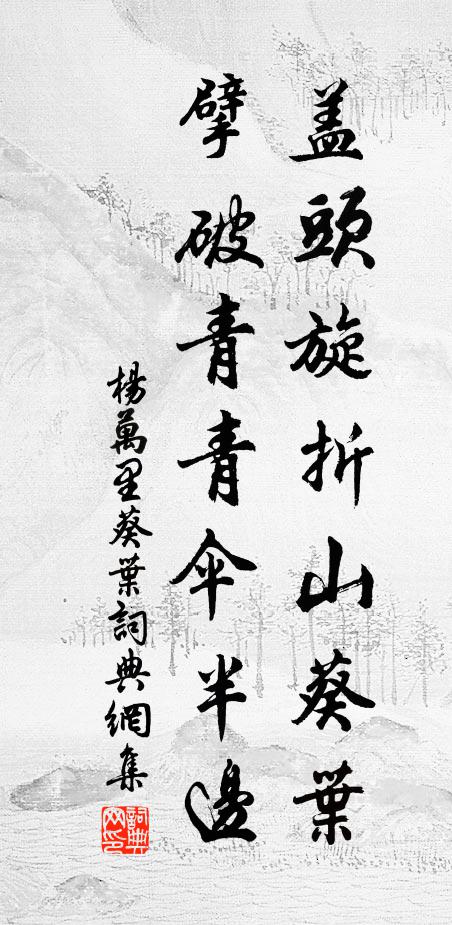 盖頭旋折山葵葉
擘破青青傘半邊
楊萬里葵葉詞典網集
詞典網印